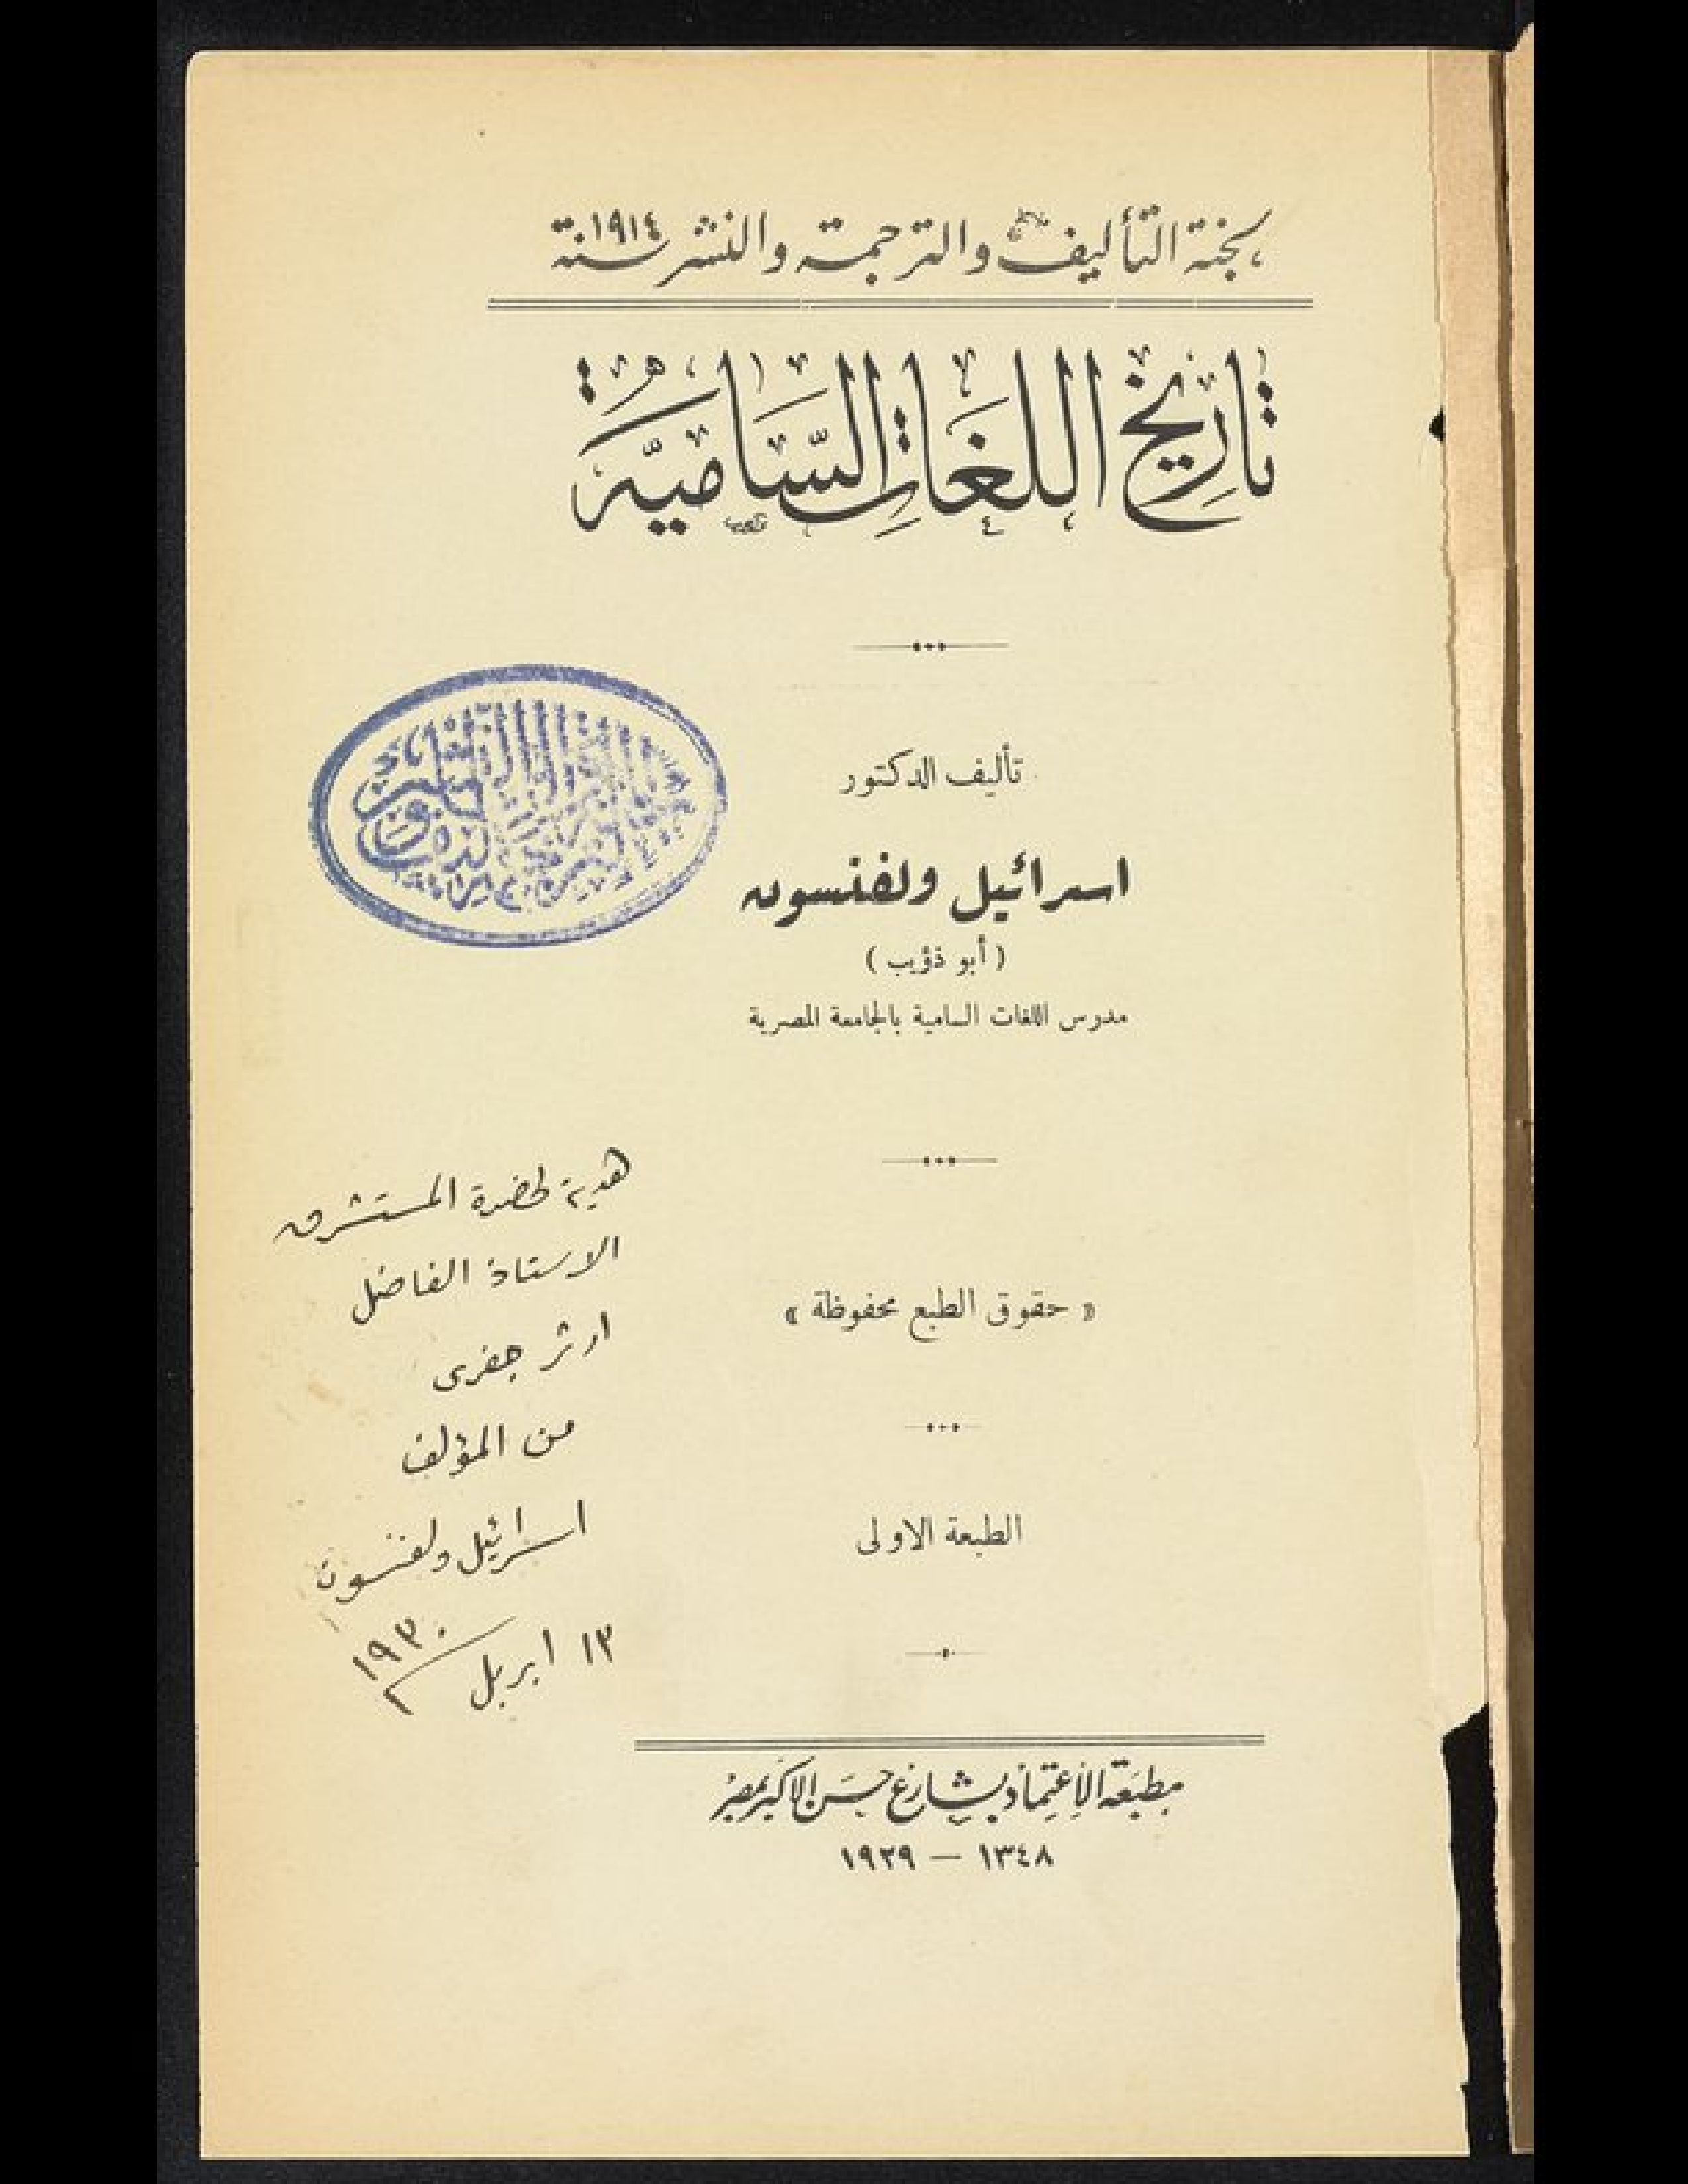 لجنة التأليف والترجمة والنشر سنة ١٩١٤
تاريخ اللغات السامية
تأليف الدكتور
اسرائيل ولفنسون
( أبو ذؤيب )
مدرس اللغات السامية بالجامعة المصرية
هدية لحضرة المستشرق
الاستاذ الفاضل
ارثر جفرى
من المؤلف
اسرائيل ولفنسون
١٣ ابريل ١٩٣٠
« حقوق الطبع محفوظة »
الطبعة الاولى
مطبعة الاعتماد بشارع حسن الاكبر بمصر
١٣٤٨ — ١٩٢٩